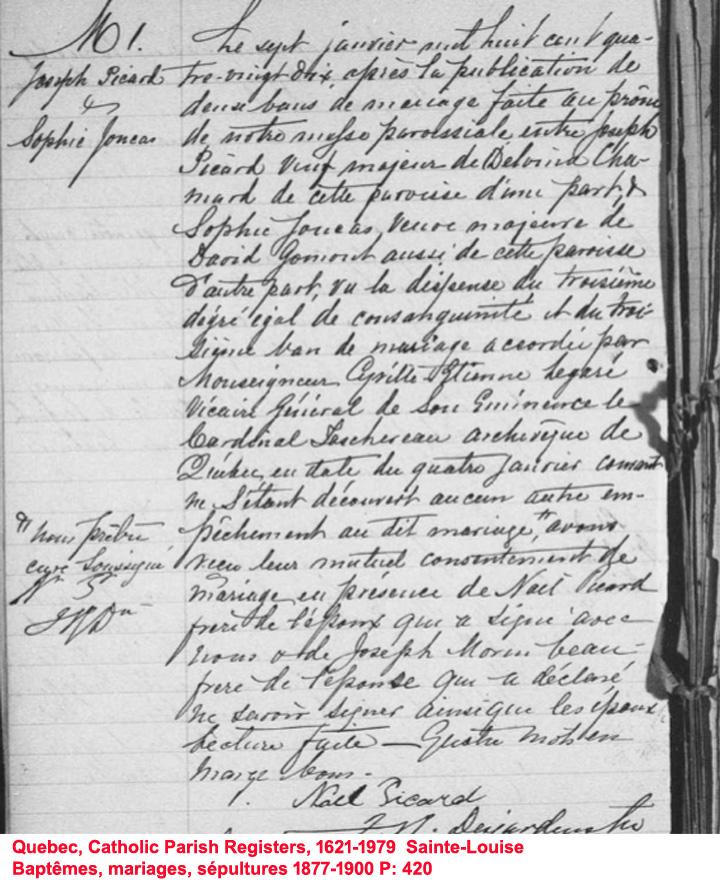 M 1.
Joseph Picard
&
Sophie Joncas
Le sept janvier mil huit cent qua-
tre-vingt dix, après la publication de
deux bans de mariage faite au prône
de notre messe paroissiale entre Joseph
Picard veuf majeur de Delvina Cha-
mard de cette paroisse d'une part, &
Sophie Joncas, veuve majeure de
David Gomont aussi de cette paroisse
d'autre part, vu la dispense du troisième
degré égal de consanguinité et du troi-
sième ban de mariage accordée par
Monseigneur Cyrille Etienne Legaré
Vicaire Général de Son Eminence le
Cardinal Taschereau archevêque de
Québec, en date du quatre janvier courant
ne s'étant découvert aucun autre em-
pêchement au dit mariage, # avons
# nous prêtre
curé soussigné
reçu leur mutuel consentement de
mariage en présence de Noel Picard
frère de l'époux qui a signé avec
nous & de Joseph Morin beau-
frère de l'épouse qui a déclaré
ne savoir signer ainsi que les époux
Lecture faite — Quatre mots en
marge bons.
Noël Picard
Desjardins Ptre
Quebec, Catholic Parish Registers, 1621-1979 Sainte-Louise
Baptêmes, mariages, sépultures 1877-1900 P: 420